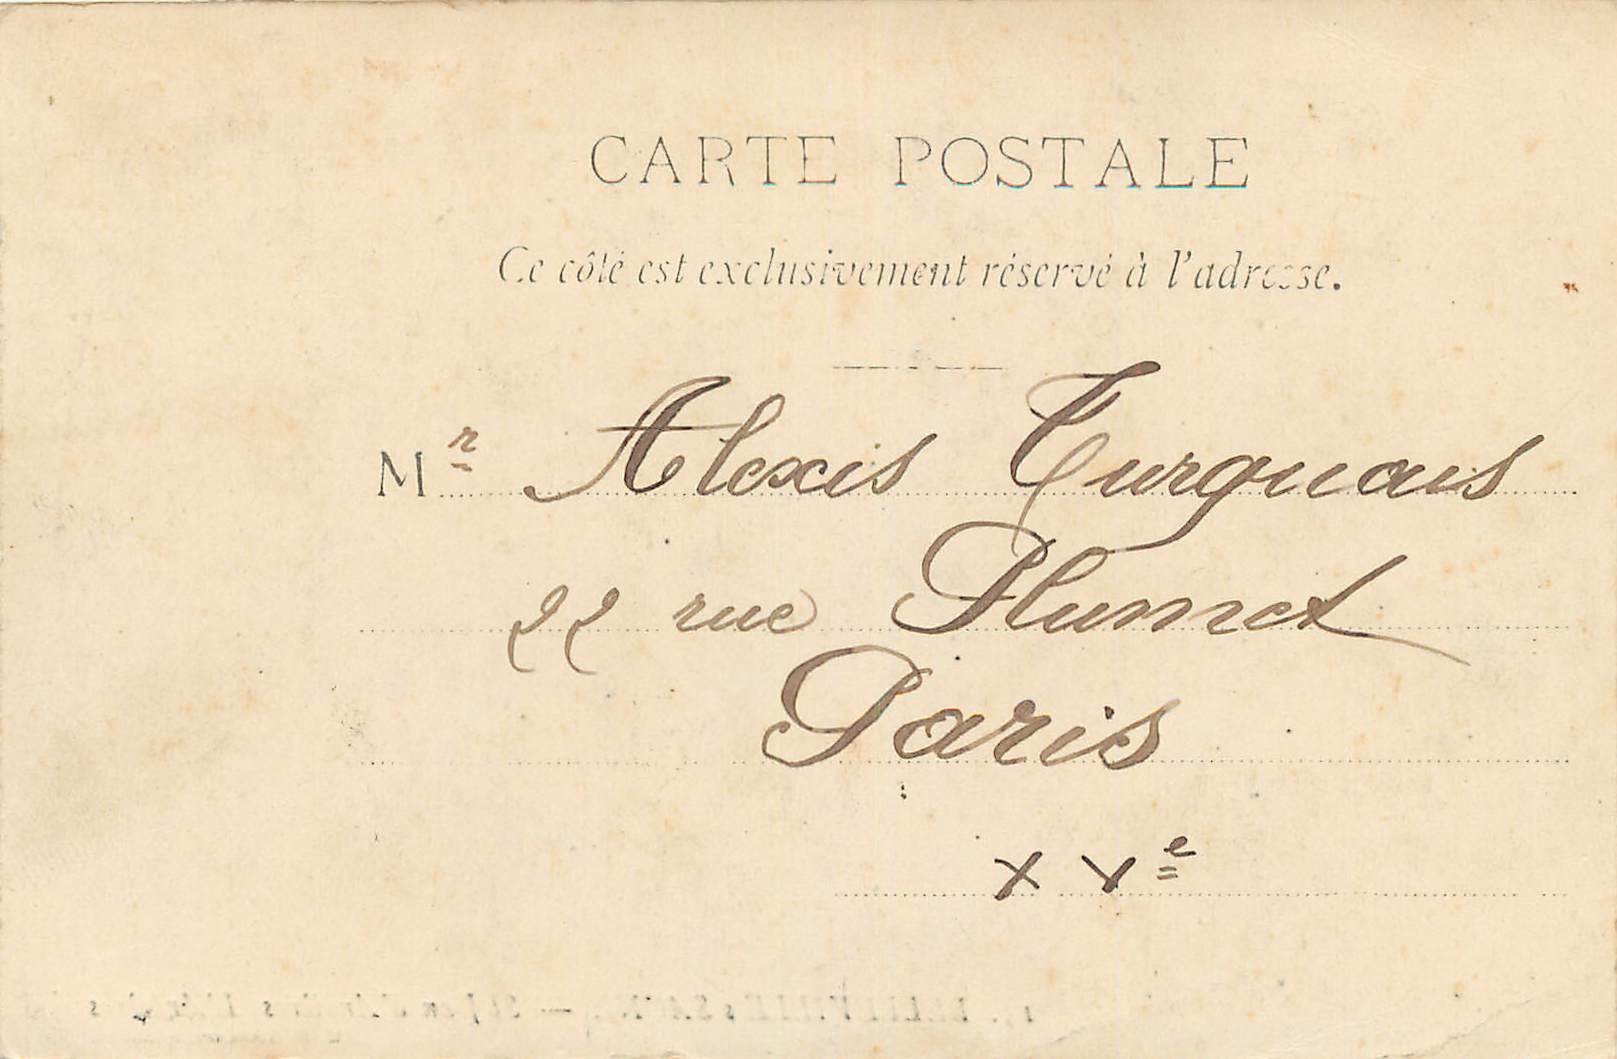 CARTE POSTALE
Ce côté est exclusivement réservé à l'adresse.
Mr Alexis Turquais
22 rue Plumet
Paris
XVe